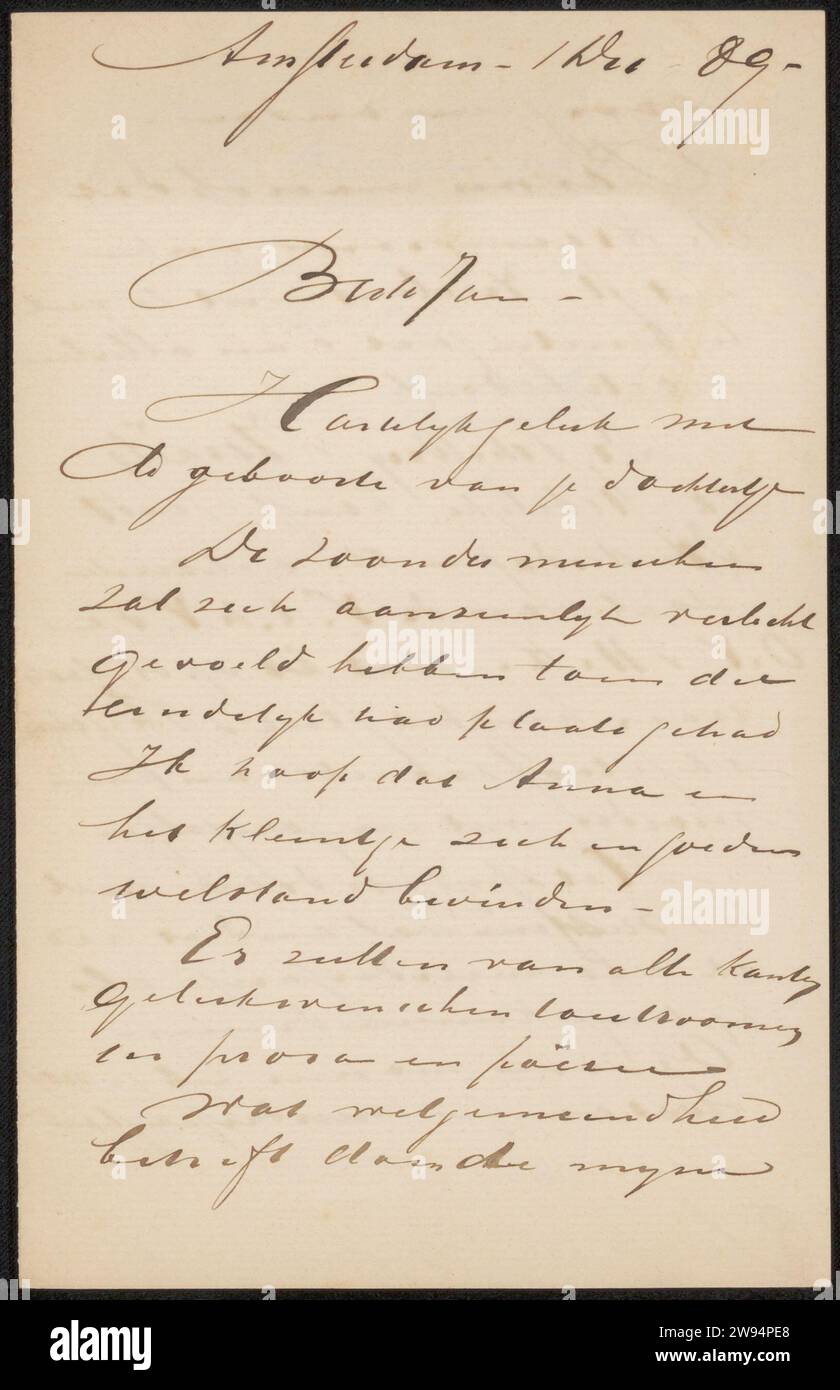 Amsterdam - 1 Dec - 89 -
Beste Jan -
Hartelijk geluk met
de geboorte van je dochtertje
De zoon des menschen
zal zich aanzienlijk verlicht
gevoeld hebben toen dit
eindelijk had plaats gehad
Ik hoop dat Anna en
het kleintje zich in goeden
welstand bevinden -
Er zullen van alle kanten
gelukwenschen toestroomen
in proza en poëzie
Wat welgemeendheid
betreft doen de mijne
alamy
Image ID: 2W94PE8
www.alamy.com